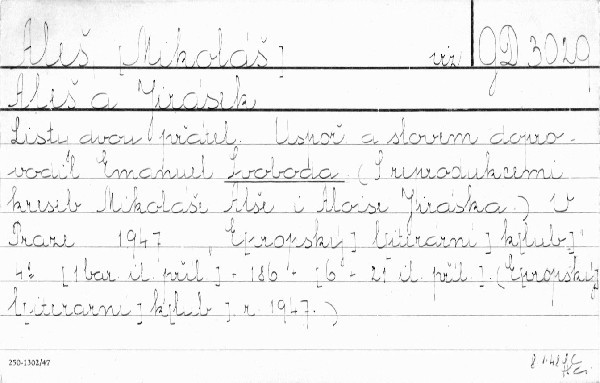 Aleš [Mikoláš] viz QD 3020
Aleš a Jirásek
Listy dvou přátel. Uspoř. a slovem dopro-
vodil Emanuel Svoboda. (S reprodukcemi
kreseb Mikoláše Alše i Aloise Jiráska.) V
Praze 1947, E[vropský] l[iterární] k[lub].
4° [1 bar. il. příl.] - 186 - [6 - 21 il. příl.]. (E[vropský]
l[iterární] k[lub]. r. 1947.)
250-1302/47